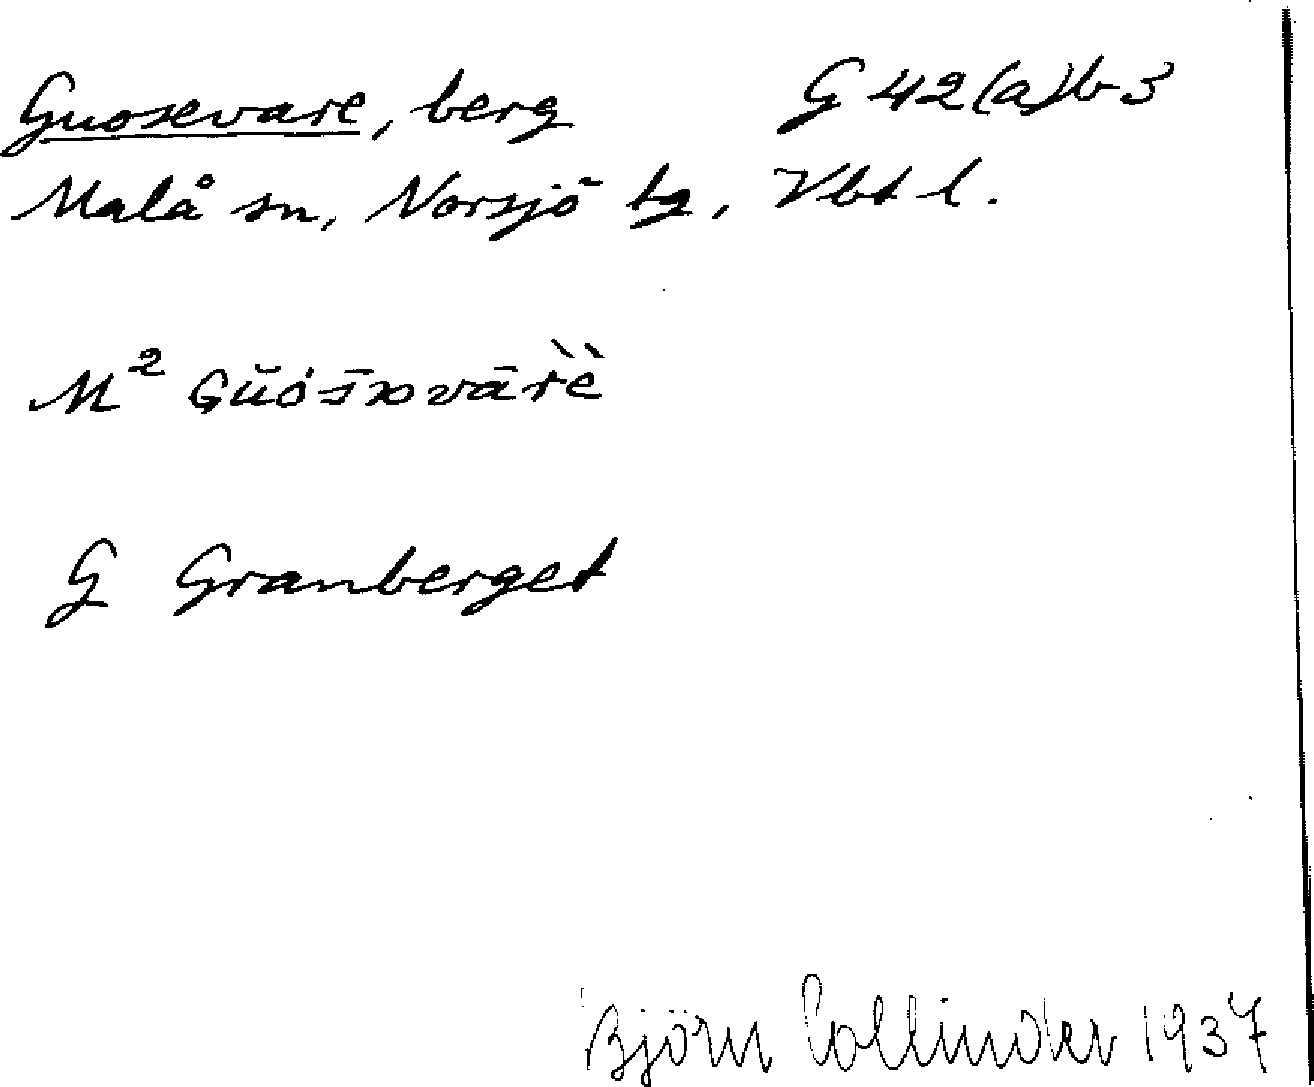 Guosevare, berg G 42(a)b3
Malå sn, Norsjö tg, Vbt l.
M² Gŭȯs̄ɔvārὲ
G Granberget
Björn Collinder 1937